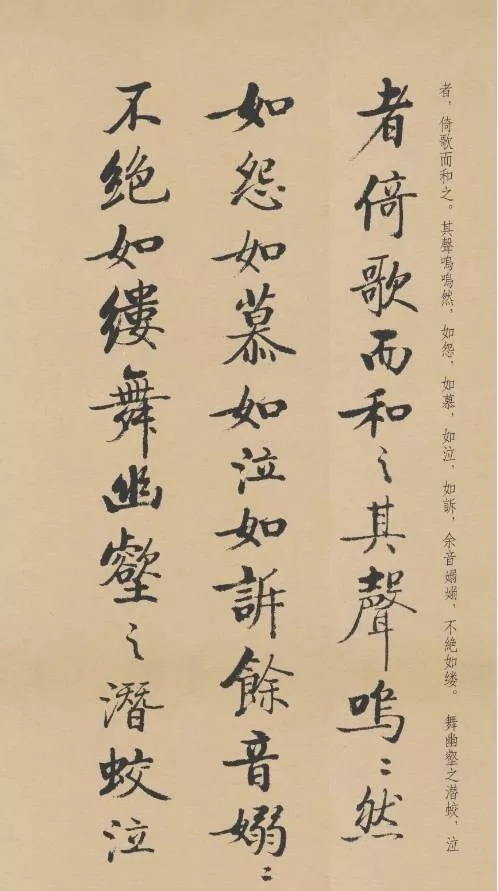 者，倚歌而和之。其聲嗚嗚然，如怨，如慕，如泣，如訴，余音嫋嫋，不絶如缕。舞幽壑之潜蛟，泣
者倚歌而和之其聲嗚〻然
如怨如慕如泣如訴餘音嫋〻
不絕如縷舞幽壑之潛蛟泣